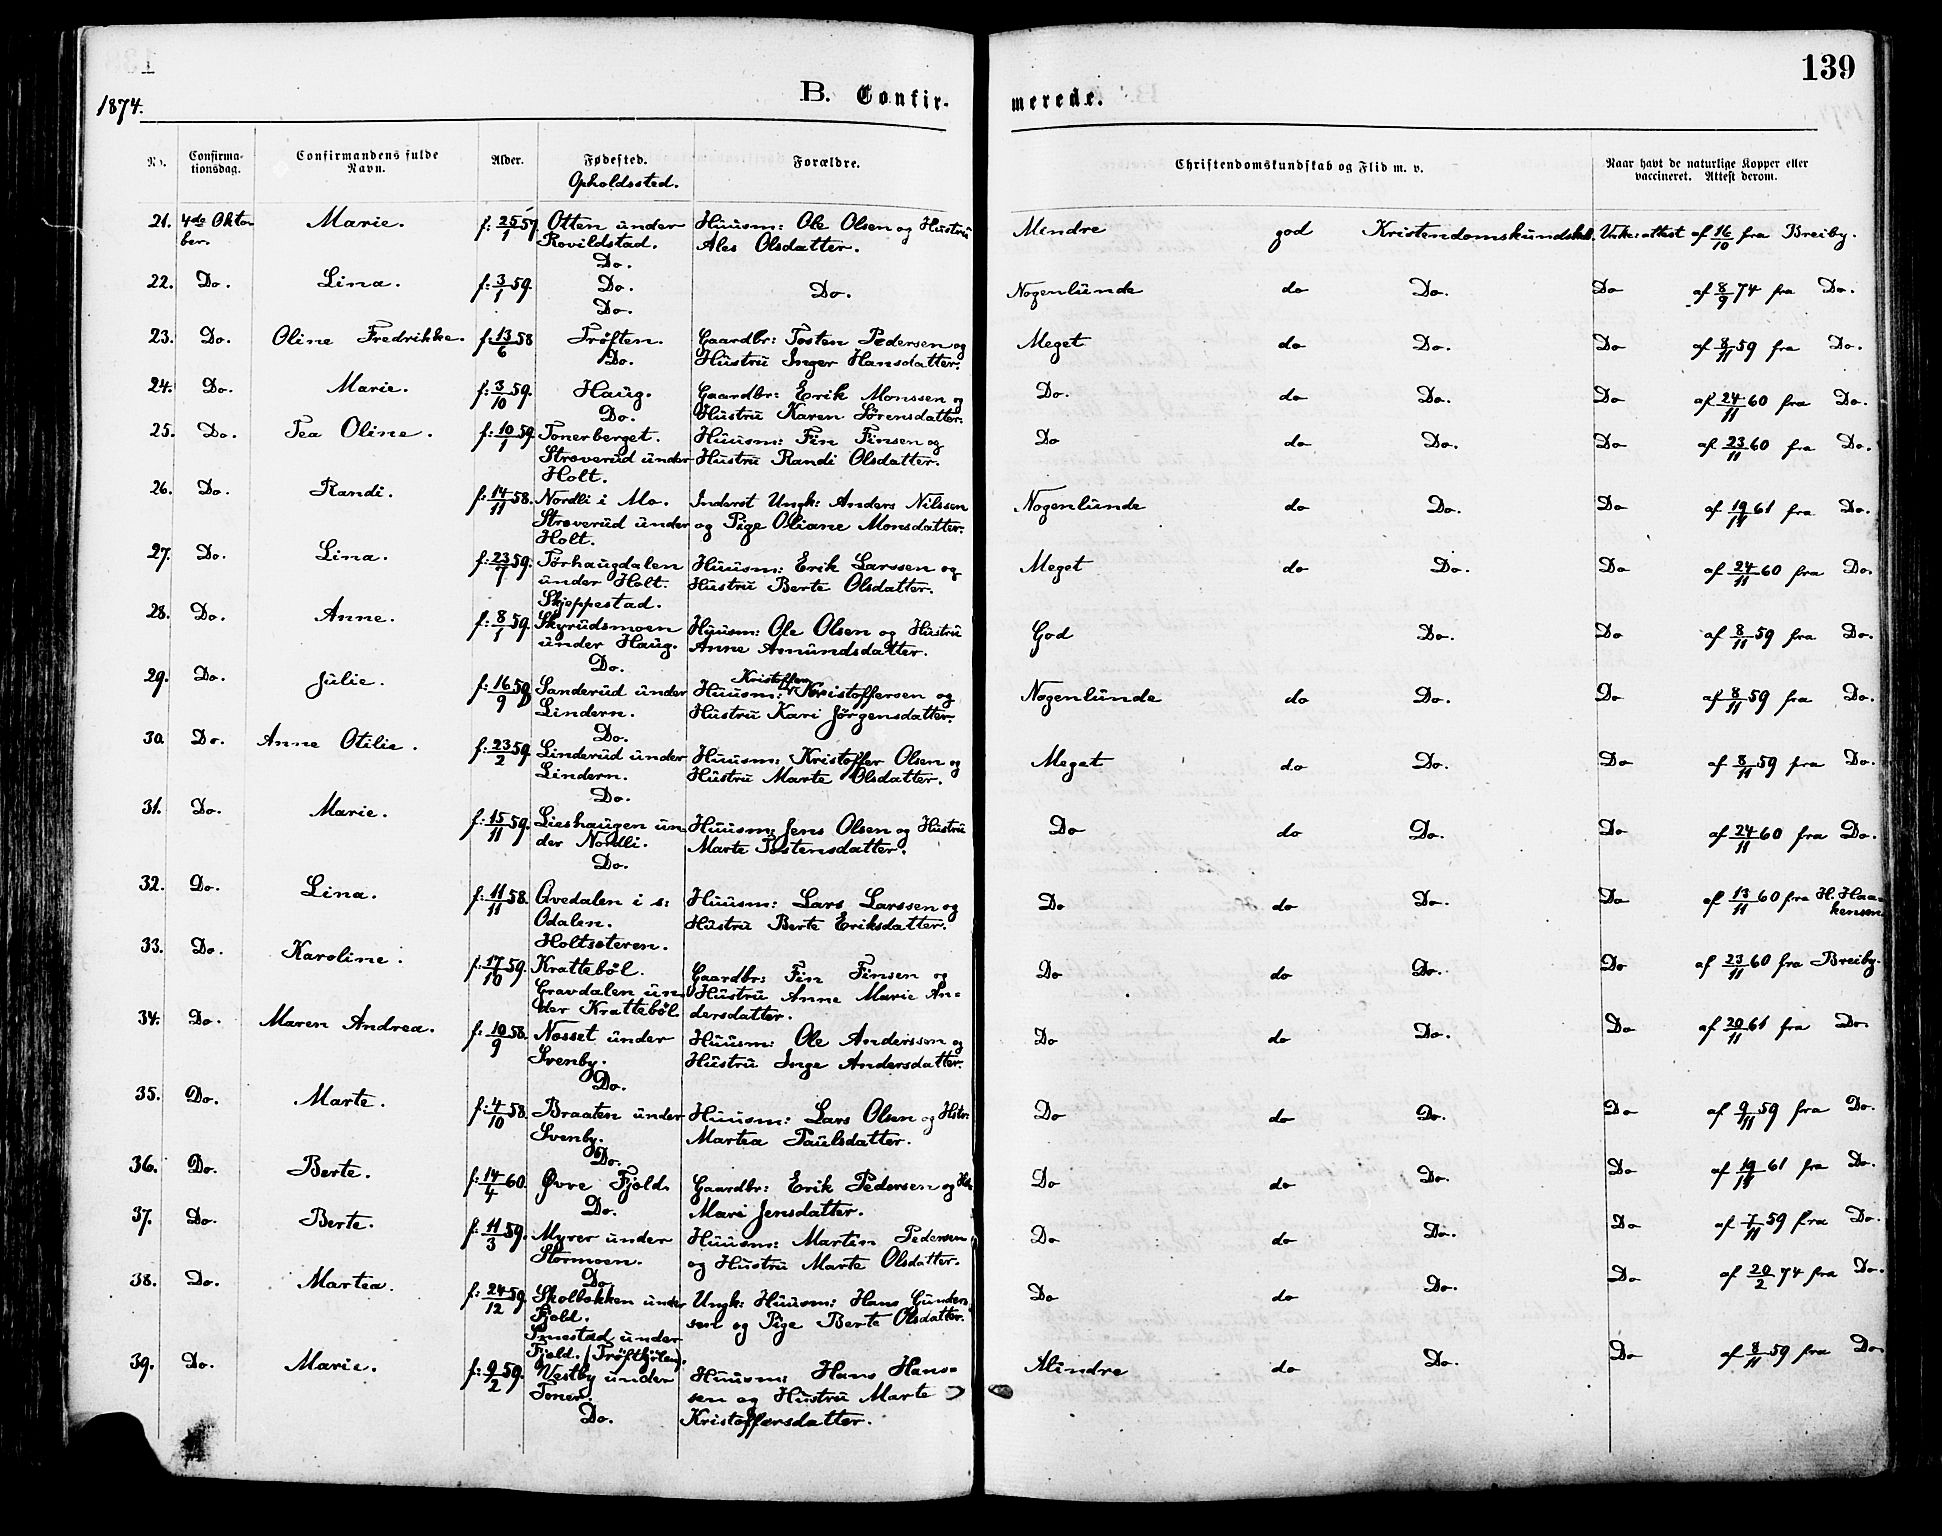 139
1874.
B. Confir-
merede.
No.
Confirma-
tionsdag.
Confirmandens fulde
Navn.
Alder.
Fødested.
Opholdssted.
Forældre.
Christendomskundskab og Flid m. v.
Naar havt de naturlige Kopper eller
vaccineret. Attest derom.
21. 4de Okto- Marie. f: 25/1 57 Otten under Huusm: Ole Olsen og Hustru Mindre god Kristendomskundskab. Vak: attest af 16/10 fra Breiby.
ber. Rovildstad. Ales Olsdatter.
Do.
22. Do. Lina. f: 3/1 59. Do. Do. Nogenlunde do Do. Do af 8/9 74 fra Do.
Do.
23. Do. Oline Fredrikke. f: 13/6 58 Trøften. Gaardbr: Tosten Pedersen og Meget do Do. Do af 8/11 59 fra Do.
Do. Hustru Inger Hansdatter.
24. Do. Marie. f: 3/10 59. Haug. Gaardbr: Erik Monssen og Do. do Do. Do af 24/11 60 fra Do.
Do. Hustru Karen Sørensdatter.
25. Do. Tea Oline. f: 10/1 59. Tonerberget. Huusm: Fin Finsen og Do do Do. Do af 23/11 60 fra Do.
Strøverud under Hustru Randi Olsdatter.
Holt.
26. Do. Randi. f: 14/11 58. Nordli i Mo. Inderst Ungk: Anders Nilssen Nogenlunde do Do. Do af 19/11 61 fra Do.
Strøverud under og Pige Oliane Monsdatter.
Holt.
27. Do. Lina. f: 23/7 59. Tørhaugdalen Huusm: Erik Larssen og Meget do Do. Do af 24/11 60 fra Do.
under Holt. Hustru Berte Olsdatter.
Skjeppestad.
28. Do. Anne. f: 8/1 59. Skyrudsmoen Huusm: Ole Olsen og Hustru God Do. Do af 8/11 59 fra Do.
under Haug. Anne Amundsdatter.
Do.
29. Do. Julie. f: 16/9 58 Sanderud under Huusm: Kristoffer Kristoffersen og Nogenlunde do Do. Do af 8/11 59 fra Do.
Lindern. Hustru Kari Jørgensdatter.
Do.
30. Do. Anne Otilie. f: 23/2 59. Linderud under Huusm: Kristoffer Olsen og Meget do Do. Do af 8/11 59 fra Do.
Lindern. Hustru Marte Olsdatter.
Do.
31. Do. Marie. f: 15/11 59. Lieshaugen un- Huusm: Jens Olsen og Hustru Do do Do. Do af 24/11 60 fra Do.
der Nordli. Marte Tostensdatter.
Do.
32. Do. Lina. f: 11/11 58. Qvedalen i s: Huusm: Lars Larssen og Do do Do. Do af 13/11 60 fra H. Haa-
Odalen. Hustru Berte Eriksdatter. kensen
Holtsæteren.
33. Do. Karoline. f: 17/10 59. Krattebøl. Gaardbr: Fin Finsen og Do do Do. Do af 23/11 60 fra Breiby.
Gravdalen un- Hustru Anne Marie An-
der Krattebøl dersdatter.
34. Do. Maren Andrea. f: 10/9 58. Næsset under Huusm: Ole Anderssen og Do do Do. Do af 20/11 61 fra Do.
Svenby. Hustru Inge Andersdatter.
Do.
35. Do. Marte. f: 4/10 58. Braaten under Huusm: Lars Olsen og Hstr: Do do Do. Do af 9/11 59 fra Do.
Svenby. Martea Paulsdatter.
Do.
36. Do. Berte. f: 14/4 60. Øvre Fjeld. Gaardbr: Erik Pedersen og Do do Do. Do af 19/11 61 fra Do.
Do. Mari Jensdatter.
37. Do. Berte. f: 11/3 59. Myrer under Huusm: Martin Pedersen Do do Do. Do af 7/11 59 fra Do.
Stormoen. og Hustru Marte Olsdatter.
Do.
38. Do. Martea. f: 24/12 59. Skolbækken under Ungk: Huusm: Hans Gunder- Do do Do. Do af 20/2 74 fra Do.
Fjeld. sen og Pige Berte Olsdatter.
Smestad under
Fjeld. (Trøftkjølen).
39. Do. Marie. f: 9/2 59. Vestby under Huusm: Hans Han- Mindre do Do. Do af 8/11 59 fra Do.
Toner. sen og Hustru Marte
Do. Kristoffersdatter.